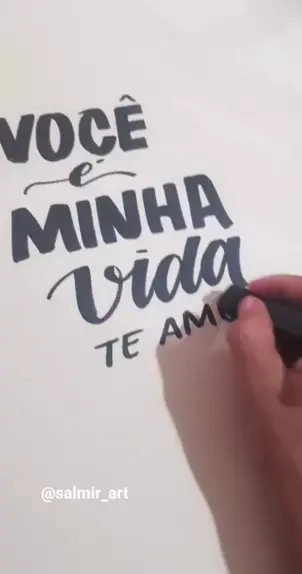 VOCÊ
é
MINHA
vida
TE AM
@salmir_art